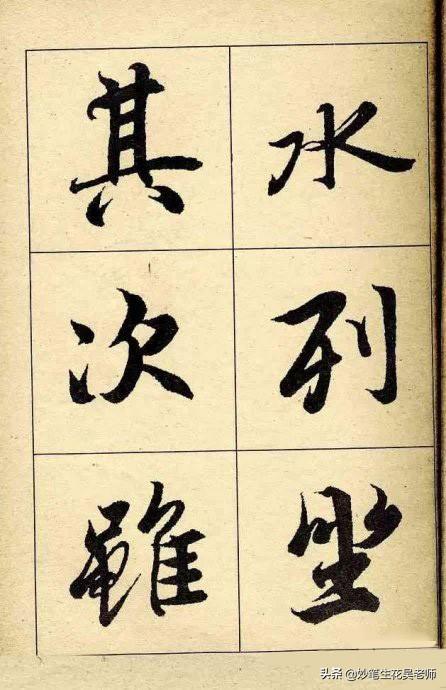 水列坐
其次雖
头条 @妙笔生花吴老师